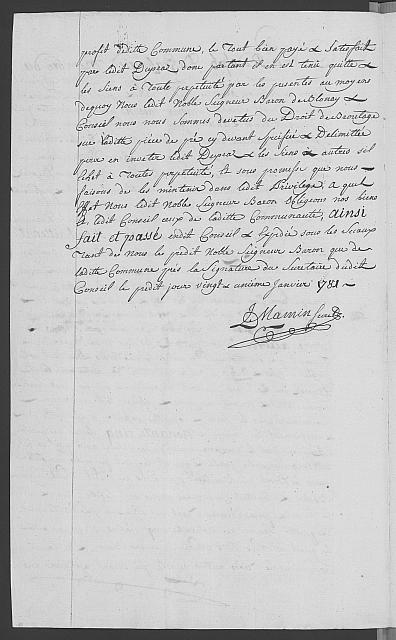 profit dudite Commune, le Tout bien payé & Satisfait
par ledit Dupraz donc partant il en est tenu quitte &
les Siens à Toute perpetuité par les presentes au moyens
dequoy Nous ledit Noble Seigneur Baron de Blonay &
Conseil nous nous Sommes devetus du Droit de
sus ladite pièce de pré cy devant Specifiée & Delimitée
pour en investir ledit Dupraz & les Siens & autres sel
à Toutes perpetuité, & sous promesse que nous
faisons de les mentenir dans ledit Privilege, a quel
effet Nous ledit Noble Seigneur Baron Obligeons nos biens
& ledit Conseil ceux de ladite Communauté, ainsi
fait et passé endit Conseil & Expedié sous les Sceaux
Tant de Nous le predit Noble Seigneur Baron que de
ladite Commune près la Signature du Secretaire dudit
Conseil le predit jour vingt & unième Janvier 1781
D Mamin Secret.